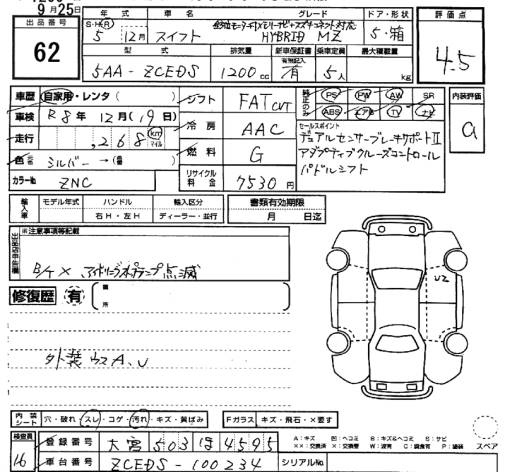 9月25日
出品番号
62
年式 車名 グレード ドア・形状
S・H・R 5 12月 スイフト HYBRID MZ 5・箱
型式 排気量 新車保証書 乗車定員 最大積載量
5AA-ZCEDS 1200cc 有 5人 kg
評価点
4.5
車歴 自家用・レンタ( ) シフト FAT CVT
純正のみ PS PW AW SR
ABS エアB TV ナビ
内装評価
a
車検 R8年12月(19)日 冷房 AAC
走行 ,268 km マイル
セールスポイント
デュアルセンサーブレーキサポートⅡ
アダプティブクルーズコントロール
パドルシフト
色 シルバー→( ) 燃料 G
カラーNo ZNC リサイクル料金 7530円
輸入車 モデル年式 ハンドル 輸入区分 書類有効期限
右H・左H ディーラー・並行 月 日迄
※注意事項等記載
B/T× アイドリングストップランプ点滅
修復歴 有
箇所
U2
外装ウスA、U
内装シート 穴・破れ・スレ・コゲ・汚れ・キズ・黄ばみ Fガラス キズ・飛石・×要す
検査員
16
登録番号 大宮 503 ほ 4595
車台番号 ZCEDS-100234 シリアルNo
A:キズ B:キズ&ヘコミ S:サビ
スペア